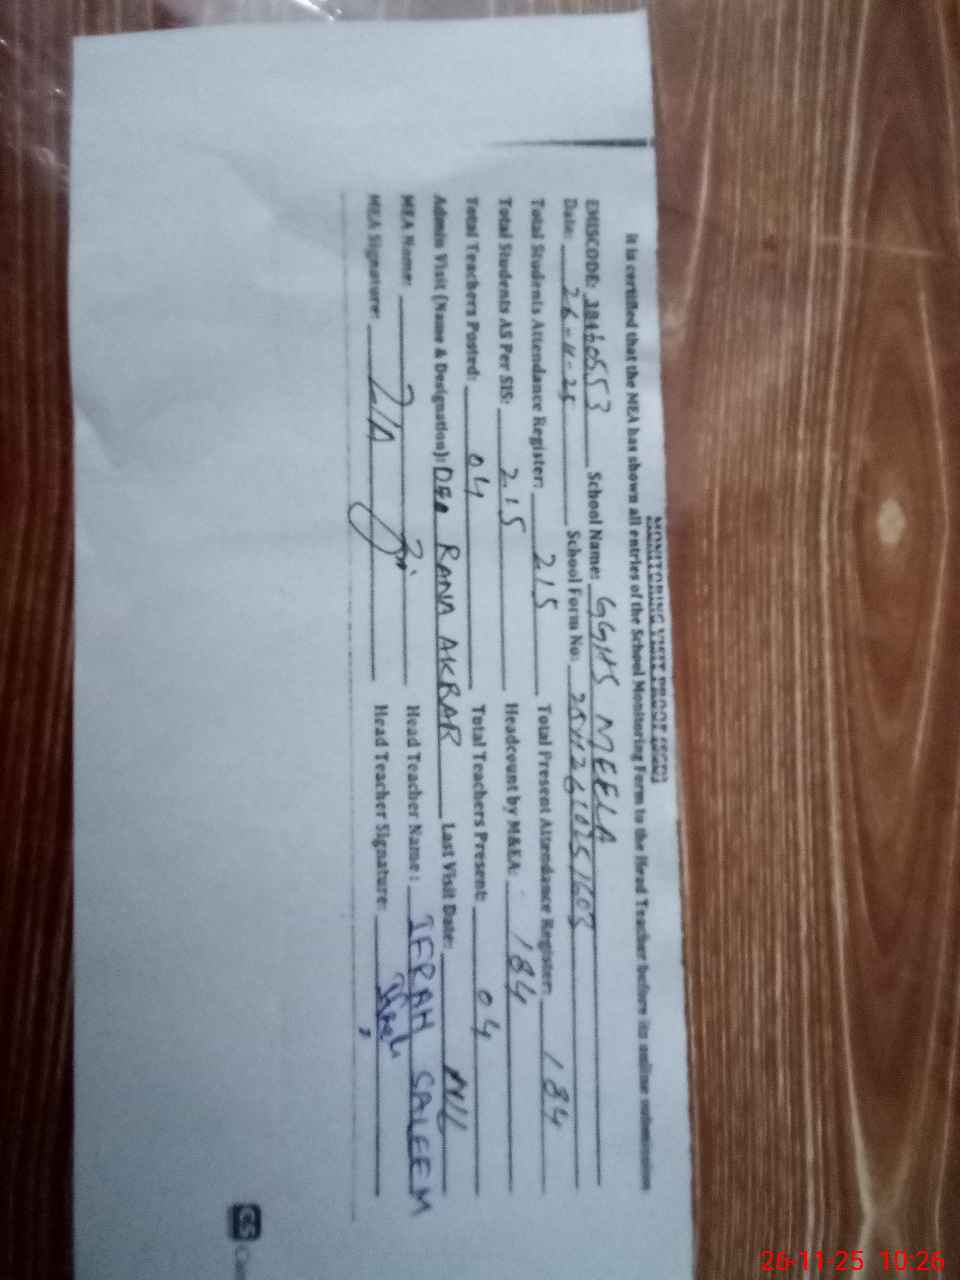 MONITORING VISIT PROOF (SGD)
It is certified that the MEA has shown all entries of the School Monitoring Form to the Head Teacher before its online submission
EMISCODE: 38460553 School Name: GGHS MEELA
Date: 26-11-25 School Form No: 25112610251603
Total Students Attendance Register: 215 Total Present Attendance Register: 184
Total Students AS Per SIS: 215 Headcount by M&EA: 184
Total Teachers Posted: 04 Total Teachers Present: 04
Admin Visit (Name & Designation): DEO RANA AKBAR Last Visit Date: NIL
MEA Name: Head Teacher Name: IFRAH SALEEM
MEA Signature: Head Teacher Signature:
CS
26-11-25 10:26